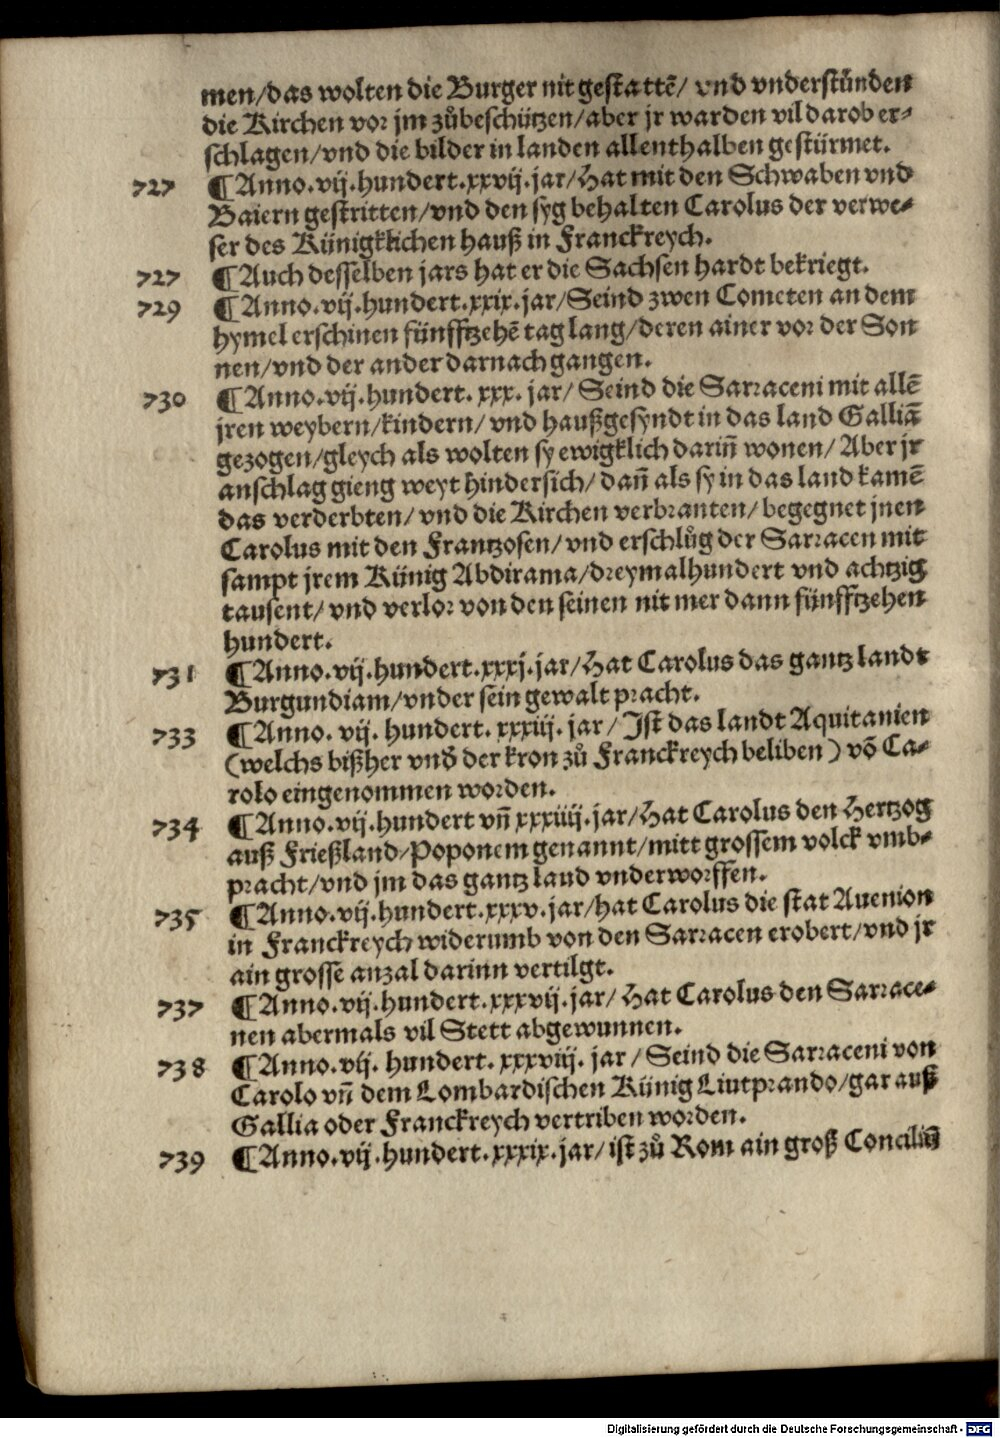 men/das wolten die Burger nit gestattẽ/ vnd vnderstůnden
die Kirchen vor jm zůbeschützen/aber jr warden vil darob er-
schlagen/vnd die bilder in landen allenthalben gestürmet.
727 ¶Anno.vij.hundert.xxvij.jar/Hat mit den Schwaben vnd
Baiern gestritten/vnd den syg behalten Carolus der verwe-
ser des Künigklichen hauß in Franckreych.
727 ¶Auch desselben jars hat er die Sachsen hardt bekriegt.
729 ¶Anno.vij.hundert.xxix.jar/Seind zwen Cometen an dem
hymel erschinen fünfftzehẽ tag lang/deren ainer vor der Son
nen/vnd der ander darnach gangen.
730 ¶Anno.vij.hundert. xxx. jar/ Seind die Sarraceni mit allẽ
jren weybern/kindern/ vnd haußgesyndt in das land Galliã
gezogen/gleych als wolten sy ewigklich dariñ wonen/ Aber jr
anschlag gieng weyt hindersich/ dañ als sy in das land kamẽ
das verderbten/ vnd die Kirchen verbranten/ begegnet jnen
Carolus mit den Frantzosen/ vnd erschlůg der Sarracen mit
sampt jrem Künig Abdirama/dreymalhundert vnd achtzig
tausent/ vnd verlor von den seinen nit mer dann fünfftzehen
hundert.
731 ¶Anno.vij.hundert.xxxj.jar/Hat Carolus das gantz landt
Burgundiam/vnder sein gewalt pracht.
733 ¶Anno. vij. hundert. xxxiij. jar / Ist das landt Aquitanien
(welchs bißher vnd̕ der kron zů Franckreych beliben) võ Ca-
rolo eingenommen worden.
734 ¶Anno.vij.hundert vñ xxxiiij.jar/Hat Carolus den Hertzog
auß Frießland/Poponem genannt/mitt grossem volck vmb-
pracht/vnd jm das gantz land vnderworffen.
735 ¶Anno.vij.hundert.xxxv.jar/hat Carolus die stat Auenion
in Franckreych widerumb von den Sarracen erobert/vnd jr
ain grosse anzal darinn vertilgt.
737 ¶Anno.vij.hundert.xxxvij.jar/ Hat Carolus den Sarrace-
nen abermals vil Stett abgewunnen.
738 ¶Anno.vij. hundert. xxxviij. jar / Seind die Sarraceni von
Carolo vñ dem Lombardischen Künig Liutprando/gar auß
Gallia oder Franckreych vertriben worden.
739 ¶Anno.vij.hundert.xxxix.jar/ ist zů Rom ain groß Conciliũ
Digitalisierung gefördert durch die Deutsche Forschungsgemeinschaft - DFG